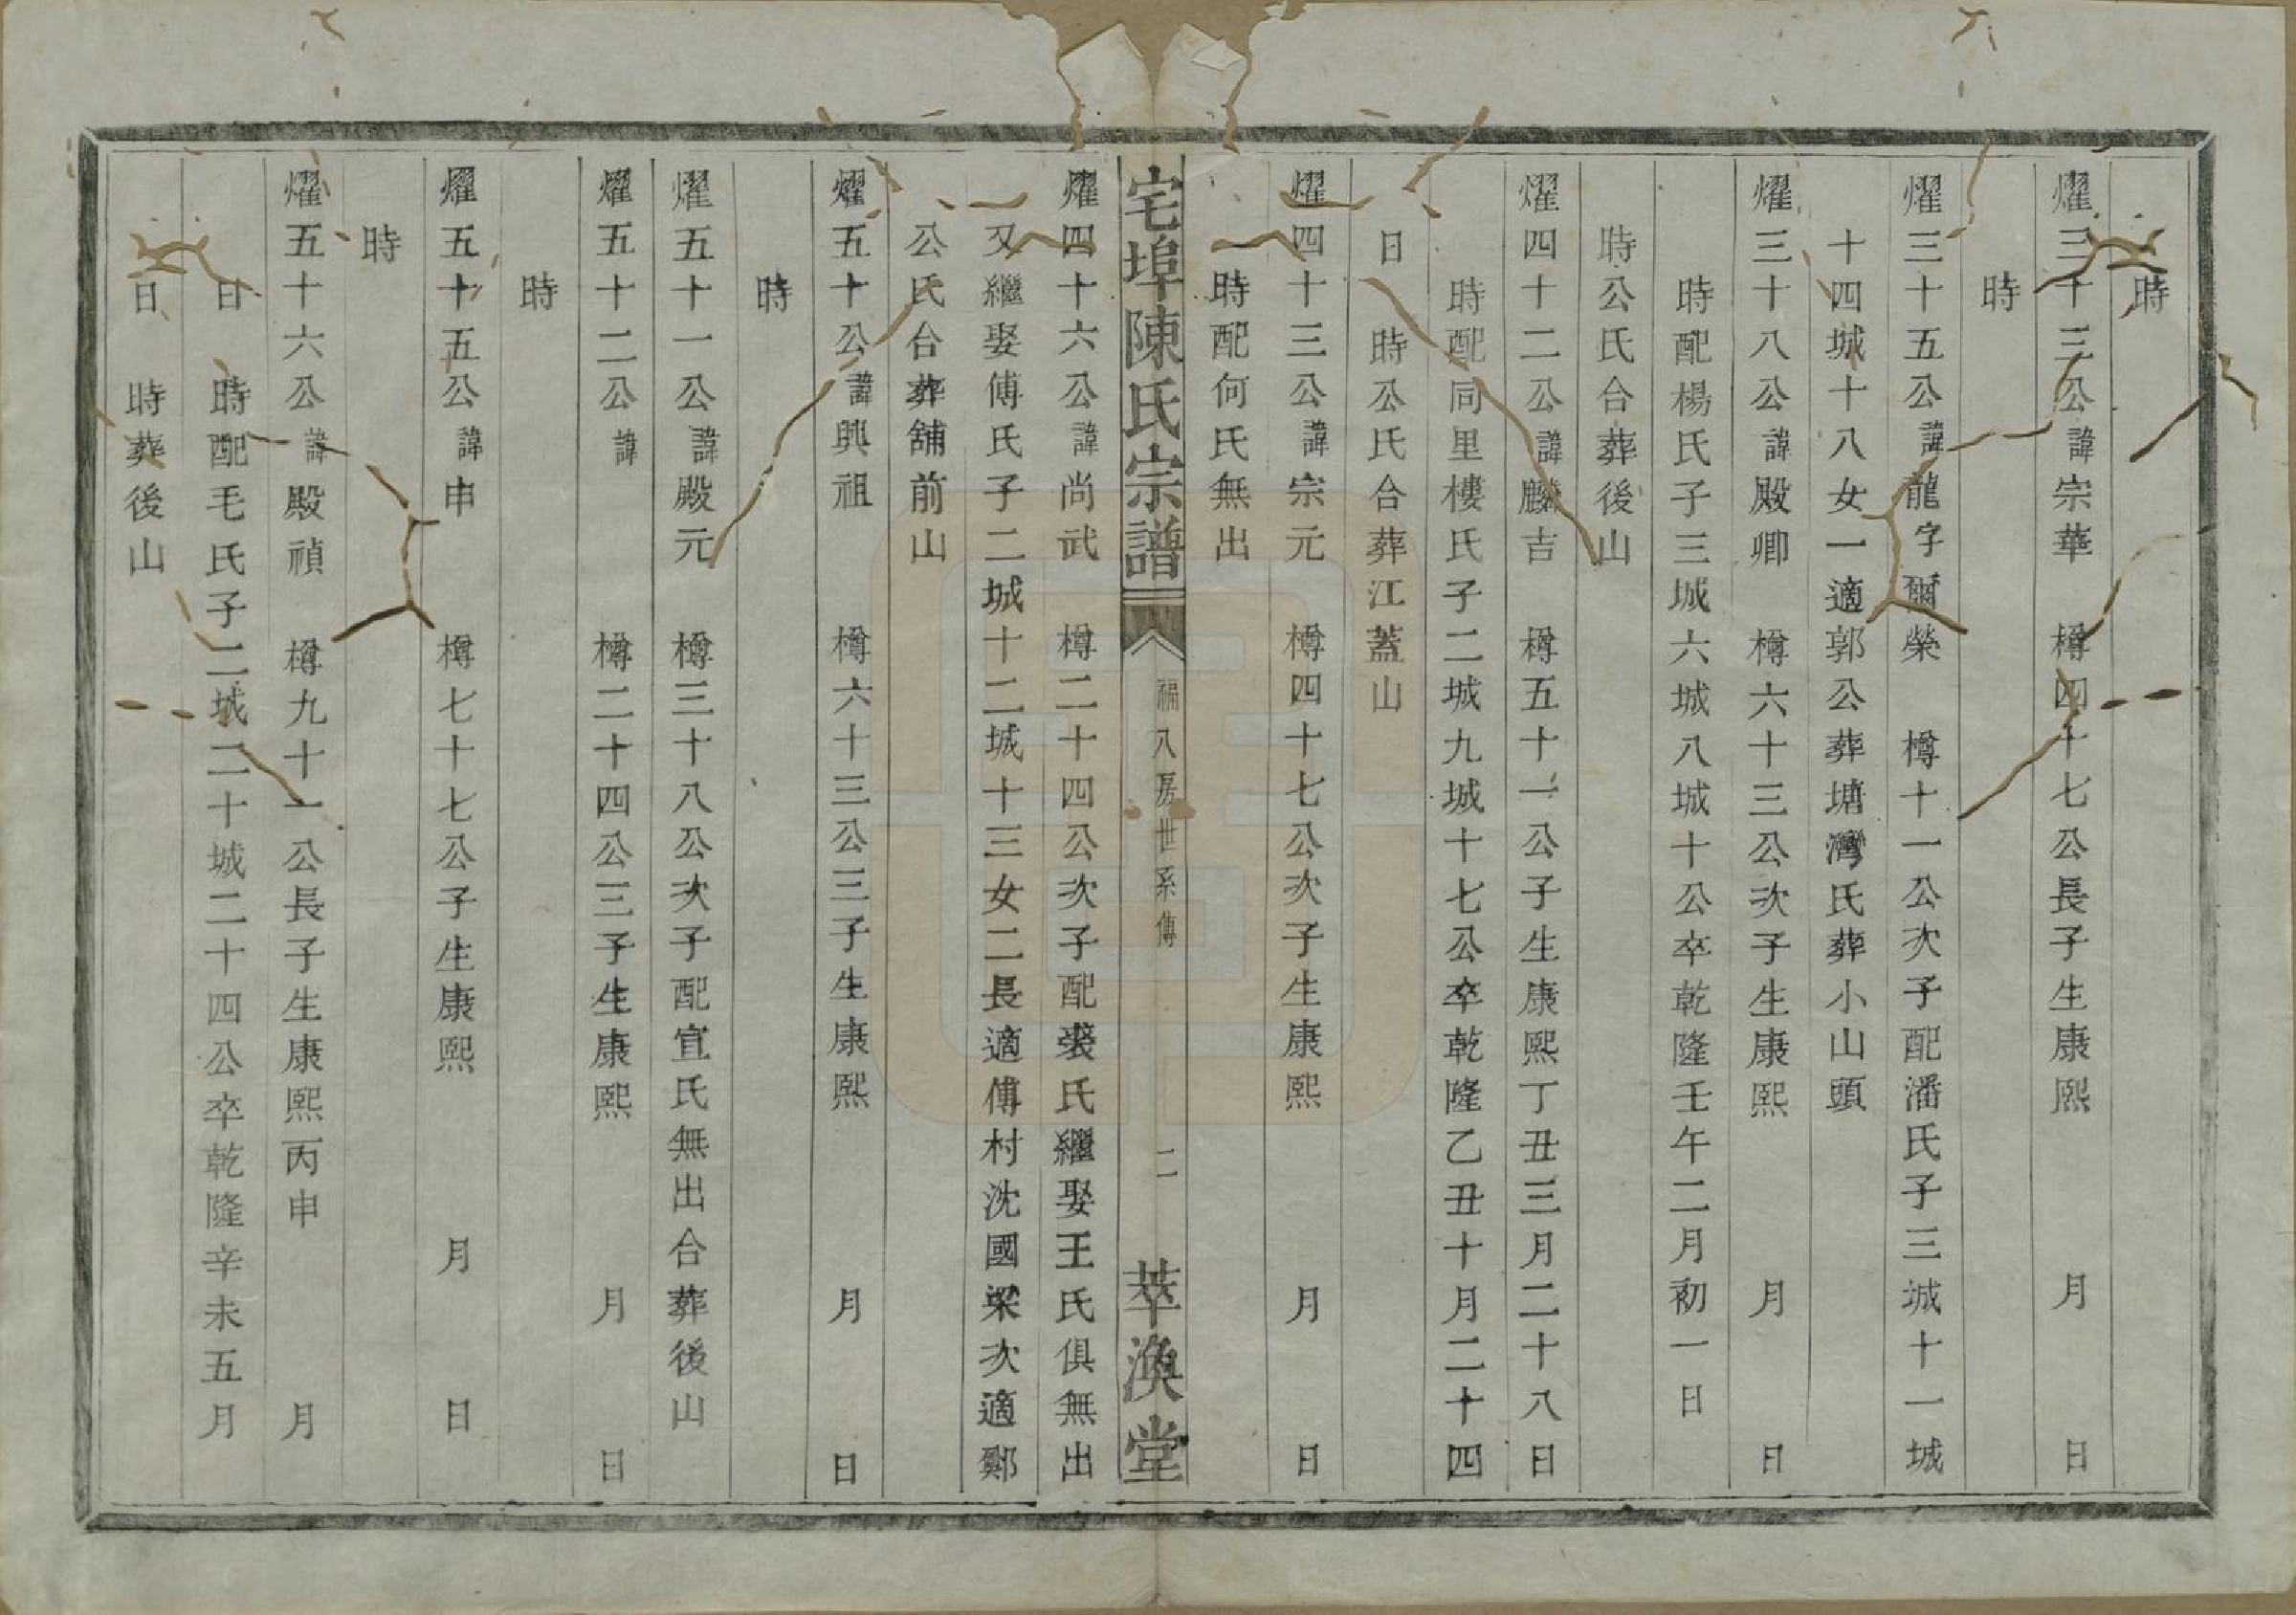 時
燿三十三公諱宗華　樽四十七公長子生康熙　月　日
時
燿三十五公諱龍字爾榮　樽十一公次子配潘氏子三城十一城
十四城十八女一適郭公葬塘灣氏葬小山頭
燿三十八公諱殿卿　樽六十三公次子生康熙　月　日
時配楊氏子三城六城八城十公卒乾隆壬午二月初一日
時公氏合葬後山
燿四十二公諱麟吉　樽五十一公子生康熙丁丑三月二十八日
時配同里樓氏子二城九城十七公卒乾隆乙丑十月二十四
日　時公氏合葬江蓋山
燿四十三公諱宗元　樽四十七公次子生康熙　月　日
時配何氏無出
宅埠陳氏宗譜　福八房世系傳　二　萃渙堂
燿四十六公諱尚武　樽二十四公次子配裘氏繼娶王氏俱無出
又繼娶傅氏子二城十二城十三女二長適傅村沈國梁次適鄭
公氏合葬舖前山
燿五十公諱興祖　樽六十三公三子生康熙　月　日
時
燿五十一公諱殿元　樽三十八公次子配宣氏無出合葬後山
燿五十二公諱　樽二十四公三子生康熙　月　日
時
燿五十五公諱申　樽七十七公子生康熙　月　日
時
燿五十六公諱殿禎　樽九十一公長子生康熙丙申　月
日　時配毛氏子二城二十城二十四公卒乾隆辛未五月
日　時葬後山